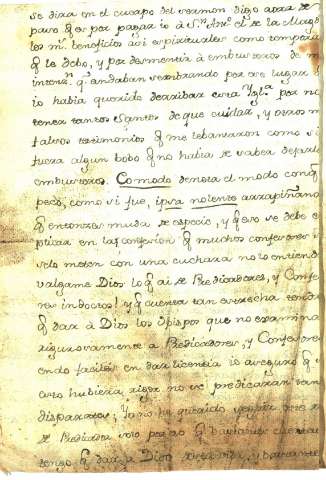 se dira en el cuerpo del sermon digo ahora se
para q es por pagar io à Sn Anto el de la Mag
los ms beneficios asi espirituales como tempora
q le debo, y por desmentir à embusteros de m
intenn q andaban sembrando por ese lugar q
io habia querido derribar esta Ygla por no
tener tantos Santos de que cuidar, y otros m
falsos testimonios q me lebantaron como si
fuera algun bobo q no habia de saber
embusteros. Comodo denota el modo con q
pecò, como si fue, ipsa nolente
q entonces muda de especie, y q eso se debe e
plicar en la confesion q muchos confesores i
se lo meten con una cuchara no lo entiende
valgame Dios lo q ai de Predicadores, y Confe
res indoctos! y q cuenta tan estrecha
q dar à Dios los Obispos que no examina
rigurosamente a Predicadores, y Confesores
endo faciles en dar licencia io aseguro q
esto hubiera rigor no se predicaran tan
disparates; Yo no he querido
de Predicador solo por no q
tengo q dar à Dios vida, y bastante